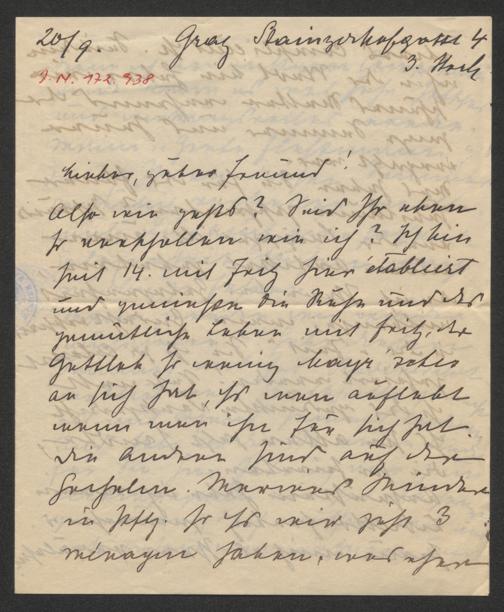 20/9. Graz Stainzerhofgasse 4
3. Stock
I. N. 172.938
Lieber, guter Freund!
Also wie gehts? Seid Ihr eben
so verschollen wie ich? Ich bin
seit 14. mit Fritz hier etabliert
und geniessen die Ruhe und das
gemütliche Leben mit Fritz, der
Gottlob so wenig Mayr'sches
an sich hat, so auflebt
wenn man ihn für sich hat.
Die Anderen sind auf der
Kinder
in so wir jetzt 3
ménagen haben, was